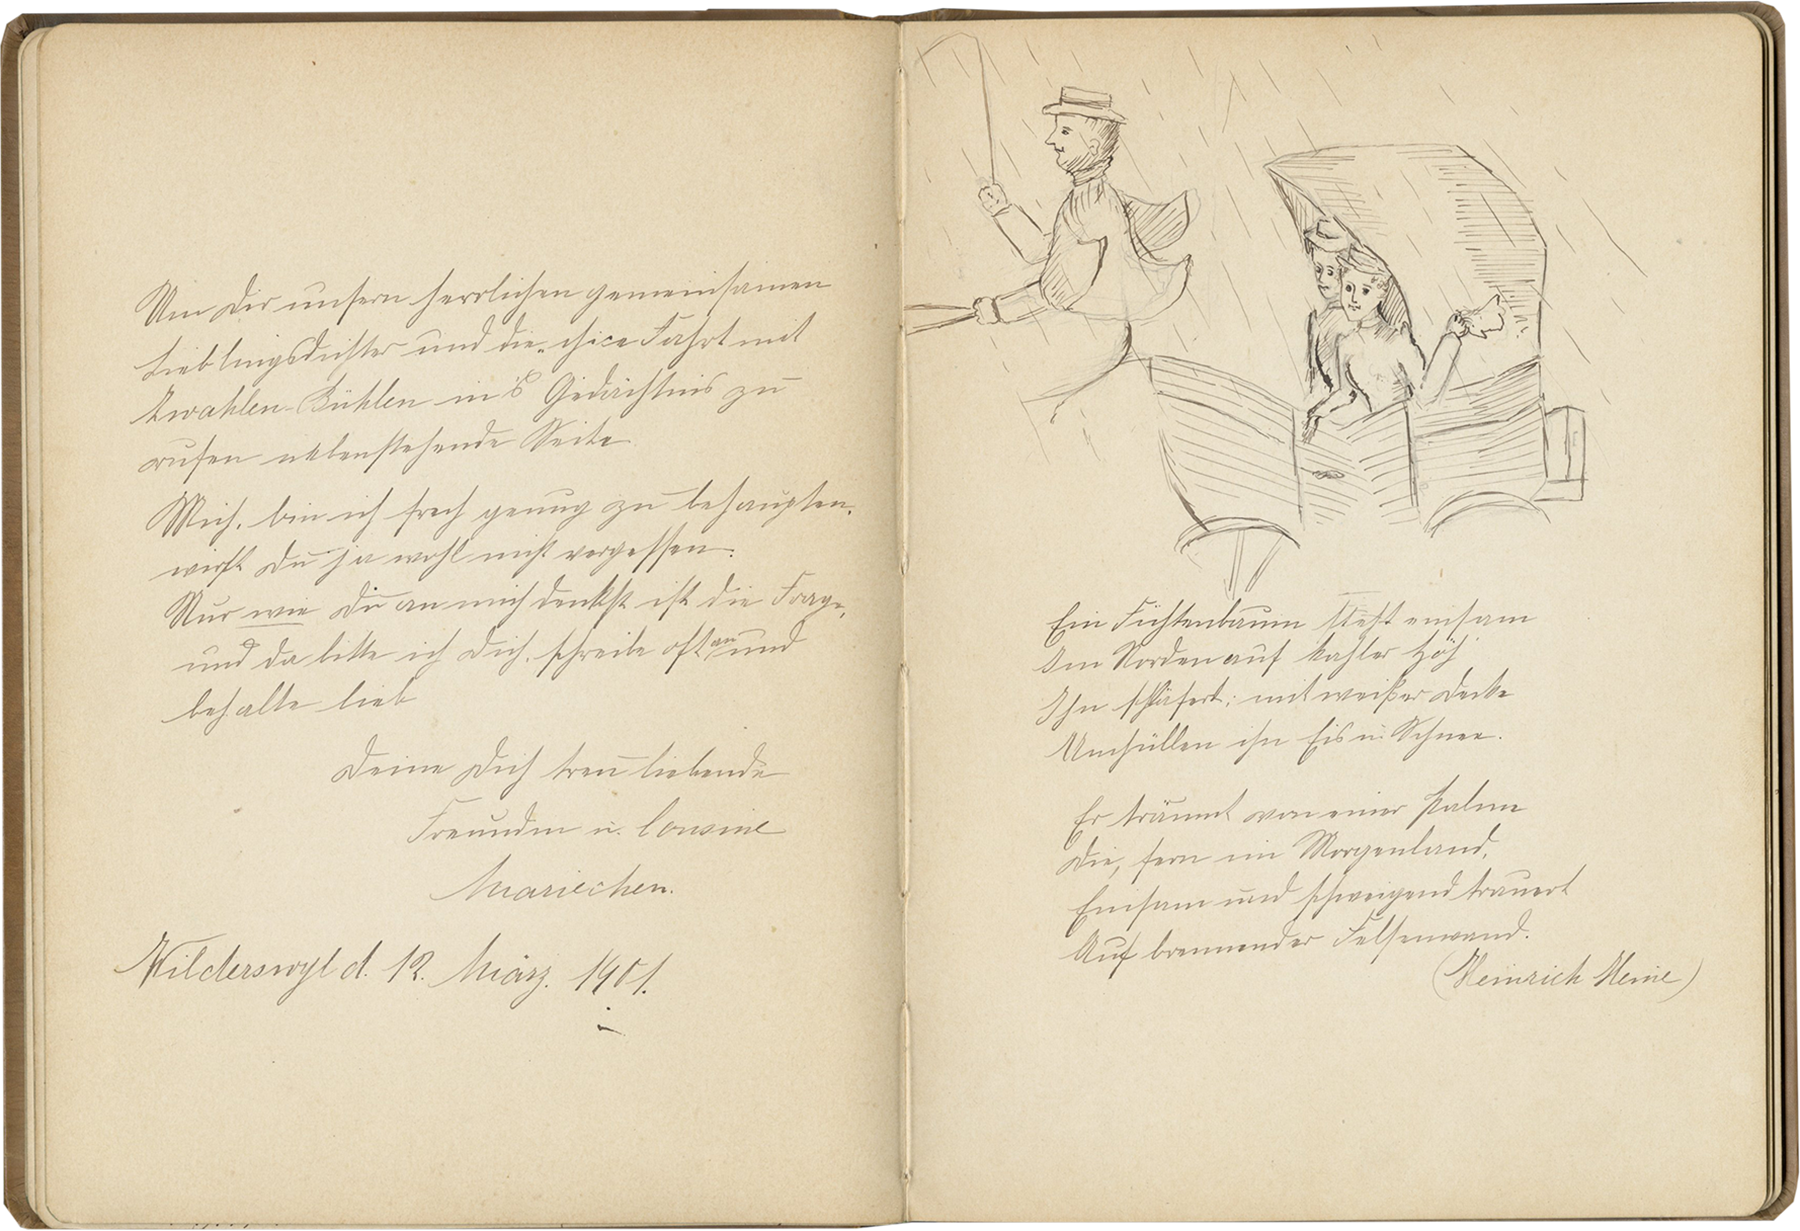 Um Dir unsern herrlichen gemeinsamen
Lieblingsdichter und die chice Fahrt mit
Zwahlen-Bühlen in's Gedächtnis zu
rufen nebenstehende Seite.
Mich, bin ich frech genug zu behaupten,
wirst Du ja wohl nicht vergessen.
Nur wie Du an mich denkst ist die Frage,
und da bitte ich Dich, schreibe oft an und
behalte lieb
Deine Dich treu liebende
Freundin u. Cousine
Mariechen.
Wilderswyl d. 12. März. 1901.
Ein Fichtenbaum steht einsam
Im Norden auf kahler Höh
Ihn schläfert; mit weißer Decke
Umhüllen ihn Eis u. Schnee.
Er träumt von einer Palme
Die, fern im Morgenland,
Einsam und schweigend trauert
Auf brennender Felsenwand.
(Heinrich Heine)